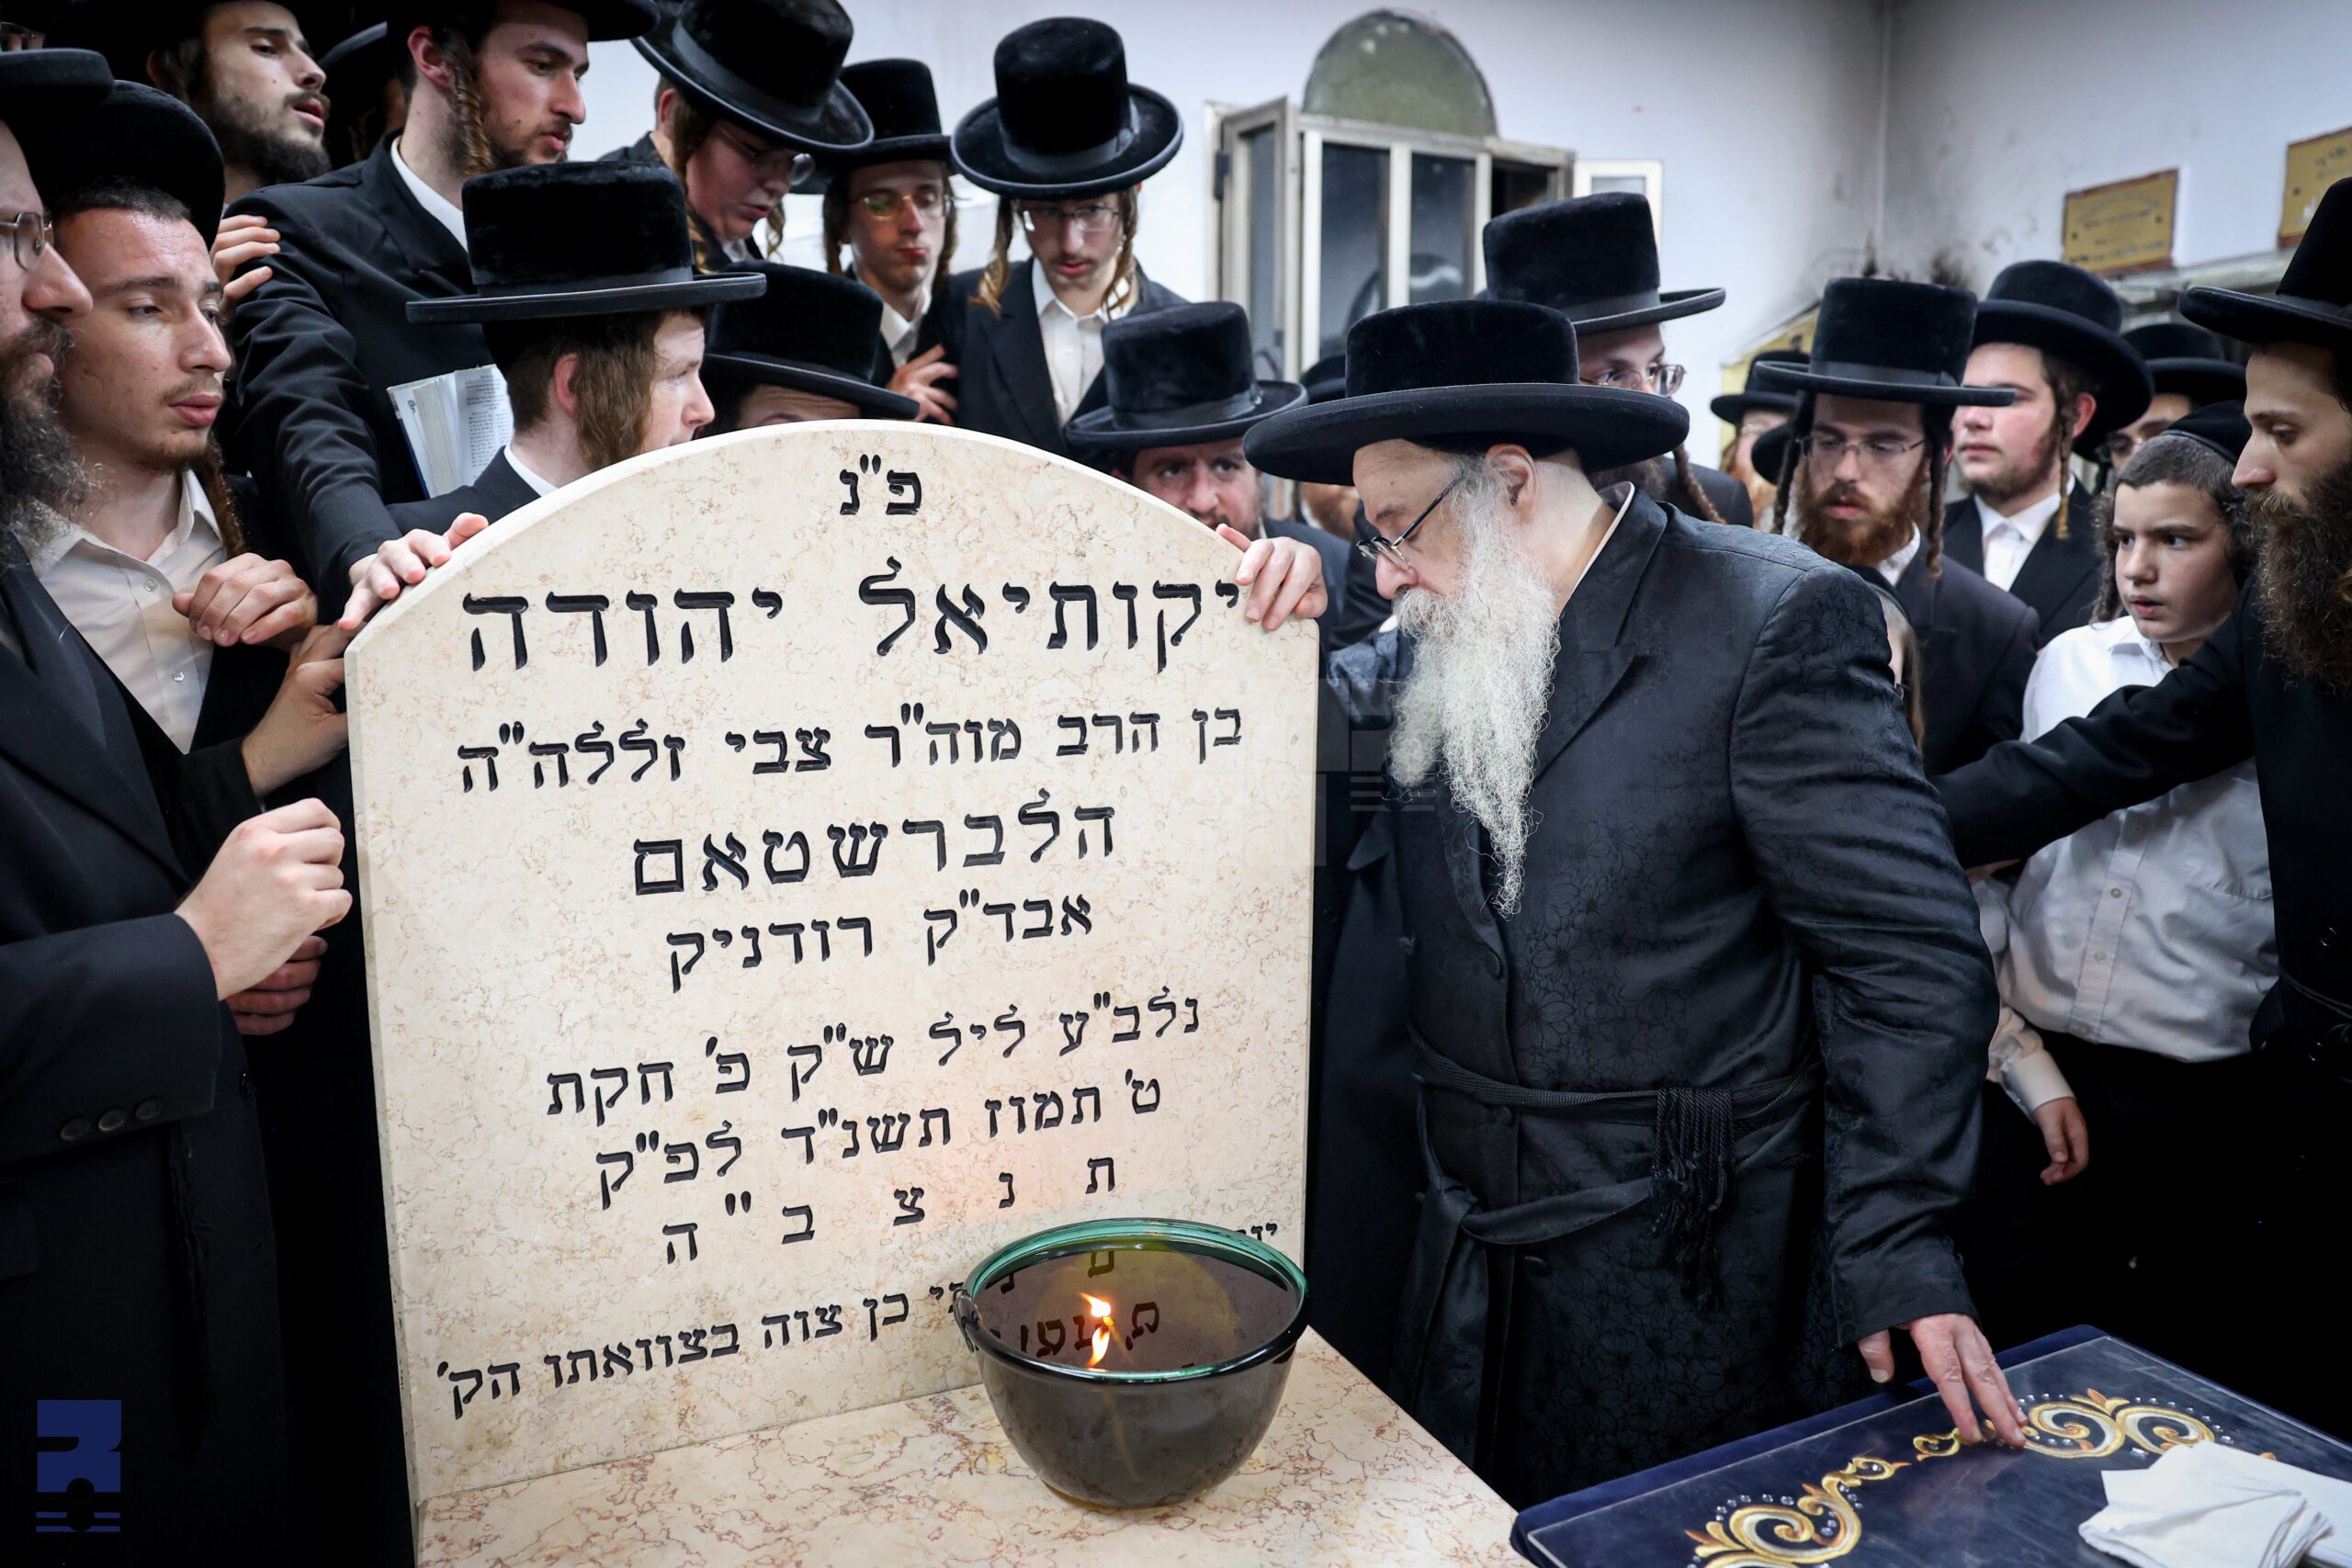 פ"נ
יקותיאל יהודה
בן הרב מוה"ר צבי זללה"ה
הלברשטאם
אבד"ק רודניק
נלב"ע ליל ש"ק פ' חקת
ט' תמוז תשנ"ד לפ"ק
ת נ צ ב " ה
כן צוה בצוואתו הק'